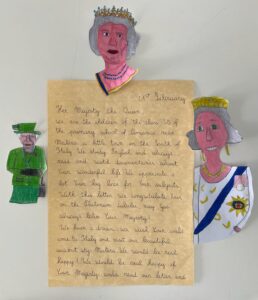 1st February
Her Majesty the Queen
we are the children of the class
the primary school of near
Matera a little town in the South of
Italy. We study English and always
read and watch documentaries about
Your wonderful life. We appreciate a
lot Your big love for Your subjects.
With this letter we congratulate You
on the Platinum Jubilee, may You
always
We have a dream: we wish You could
come to Italy and visit our beautiful
ancient city Matera. We would be very
happy if
Your Majesty could read our letter and